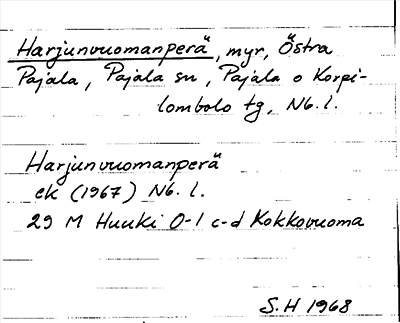 Harjunvuomanperä, myr, Östra
Pajala, Pajala sn, Pajala o Korpi-
lombolo tg, Nb. l.
Harjunvuomanperä
ek (1967) Nb. l.
29 M Huuki 0-1 c-d Kokkovuoma
S.H 1968